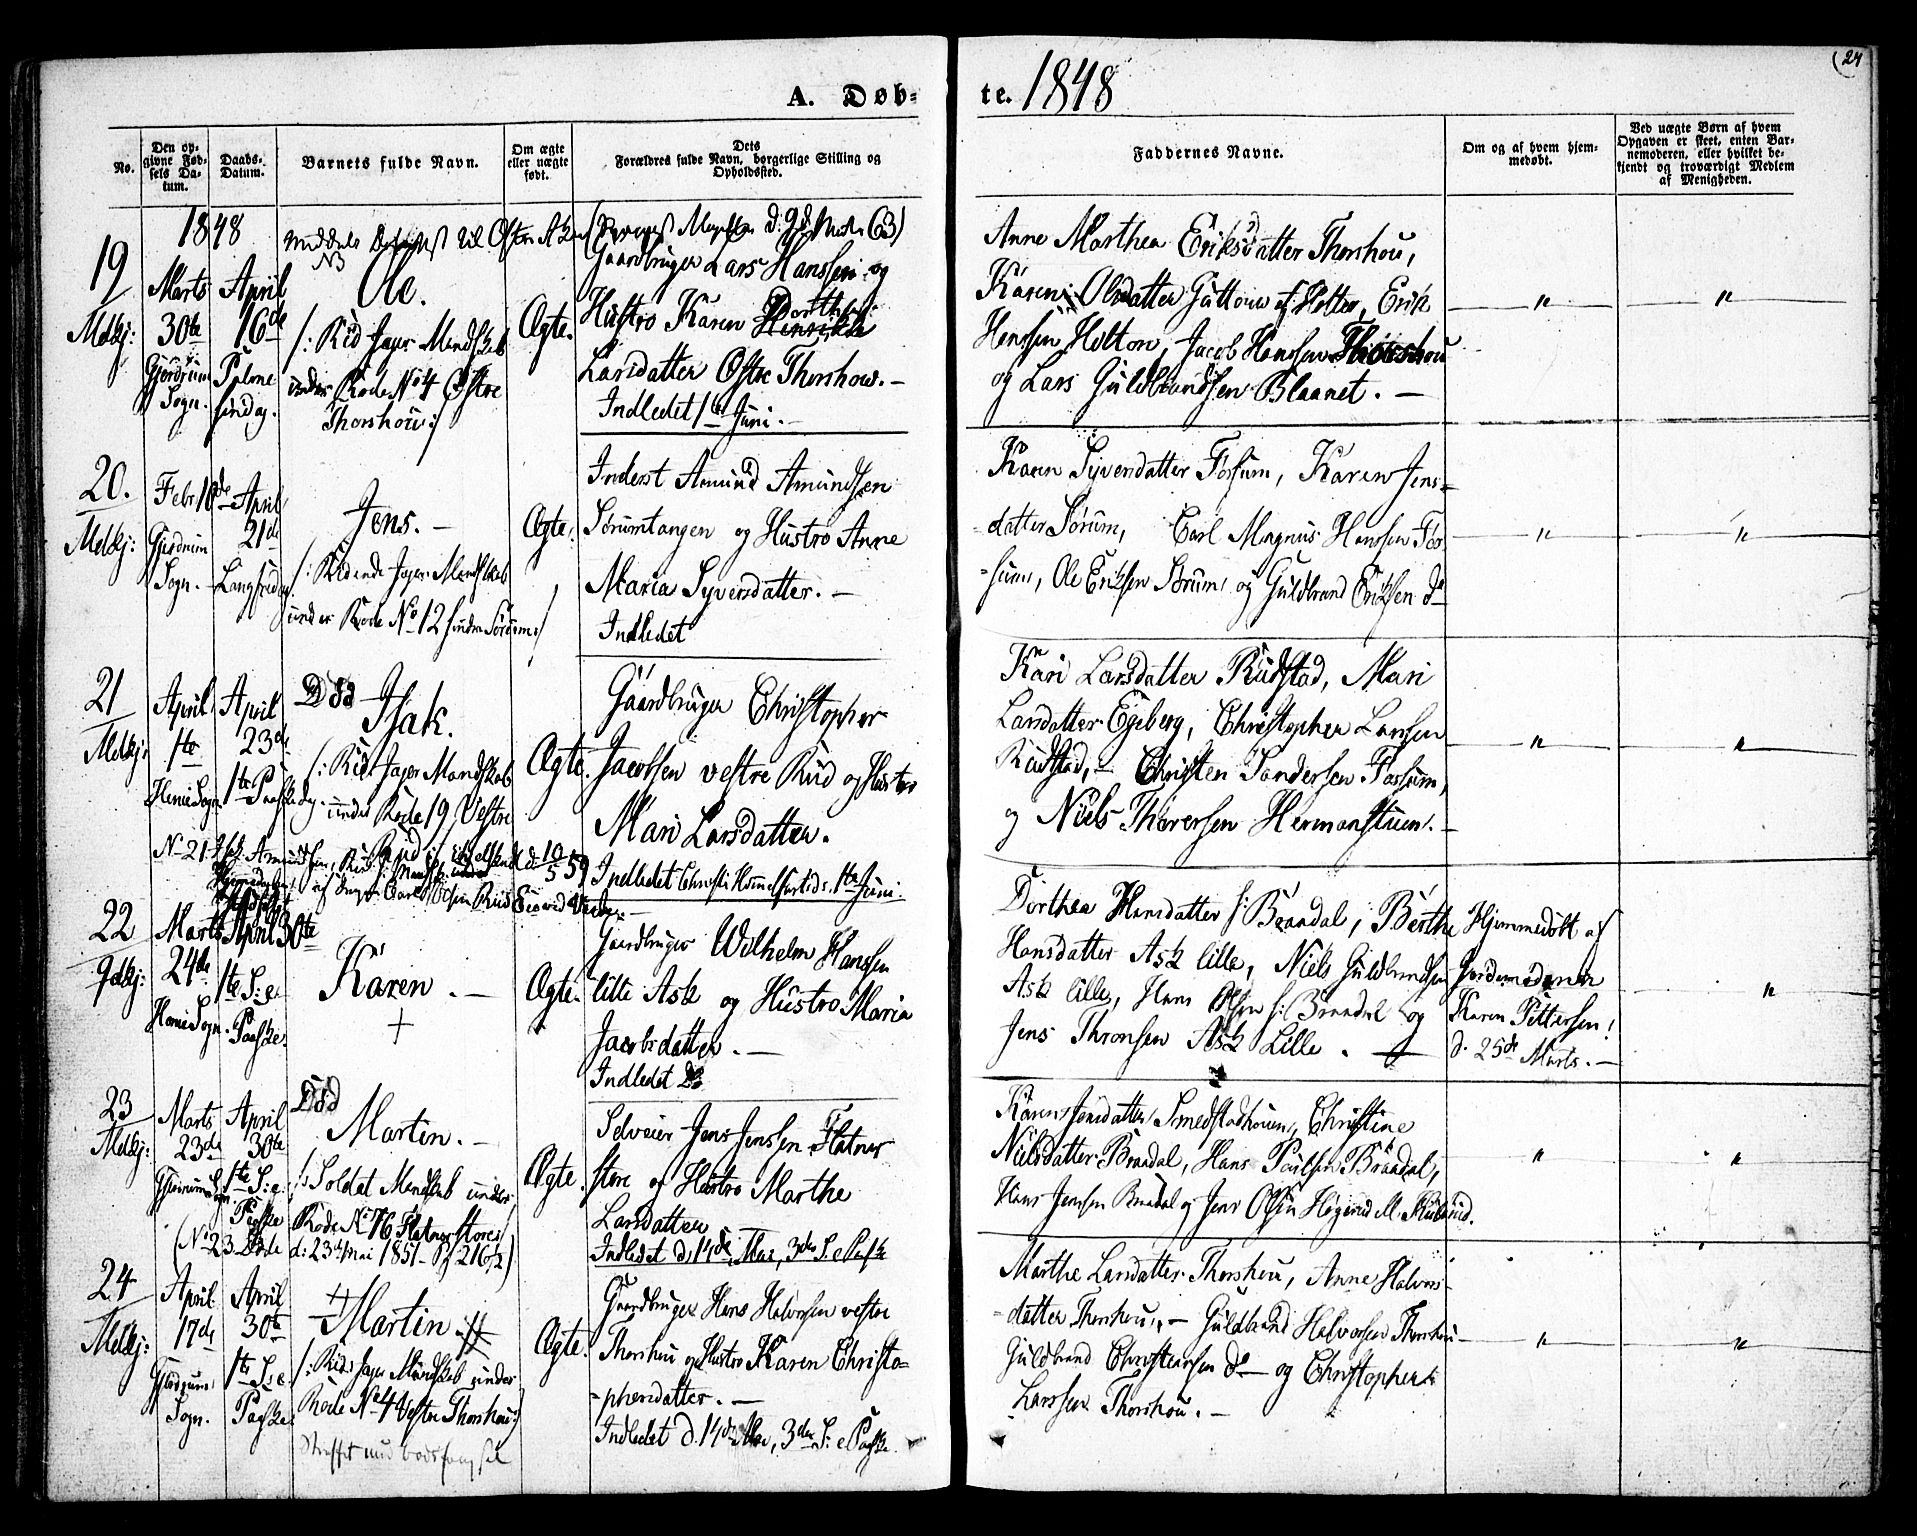 (24
A. Døb-
te. 1848
No.
Den op-
givne Fød-
sels Da-
tum.
Daabs-
Datum.
Barnets fulde Navn.
Om ægte
eller uægte
født.
Dets
Forældres fulde Navn, borgerlige Stilling og
Opholdssted.
Faddernes Navne.
Om og af hvem hjem-
medøbt.
Ved uægte Børn af hvem
Opgaven er skeet, enten Bar-
nemoderen, eller hvilket be-
kjendt og troværdigt Medlem
af Menigheden.
1848
19
Mdkj:
Marts
30te
Gjerdrum
Sogn.
April
16de
Palme
sindag.
NB
Ole.
/: Rid Jæger Mandskab
under Rode No 4 Østre
Thorshou:/
Ægte.
Gaardbruger Lars Hanssen og
Hustro Karen Dorthea
Larsdatter Østre Thorshow. —
Indledet 1te Juni. —
Anne Marthea Eriksdatter Thorshou,
Karen Olsdatter Guttorm af Holter, Erik
Hanssen Holton, Jacob Hanssen Thorshou
og Lars Guldbrandsen Blaanet. —
— " —
— " —
20.
Mdkj:
Febr 10de
Gjerdrum
Sogn.
April
21de
Langfredag
Jens. —
/: Ridende Jæger Mandskab
under Rode No 12 søndre Sørum:/
Ægte.
Inderst Amund Amundsen
Sørumtangen og Hustro Anne
Maria Syversdatter. —
Indledet
Karen Syversdatter Fossum, Karen Jens-
datter Sørum, Carl Magnus Hanssen Fos-
sum, Ole Eriksen Sørum og Guldbrand Eriksen do
— " —
— " —
21
Mdkj:
April
1te
Heni Sogn
April
23de
1te Paaskedag.
Død
Isak.
/: Rid Jæger Mandskab
under Rode 19 Vestre
Rud:/
Ægte.
Gaardbruger Christopher
Jacobsen vestre Rud og Hustro
Mari Larsdatter.
Indledet Christi Himmelfartsd. 1te Juni.
Kari Larsdatter Rudstad, Mari
Larsdatter Egeberg, Christopher Larssen
Rudstad, — Christen Sandersen Fossum,
og Niels Thoresen Hermanstuen. —
— " —
— " —
22
Marts
24de
Heni Sogn.
April 30te
1te S: e
Paaske.
Karen. —
+
Ægte.
Gaardbruger Wilhelm Hanssen
lille Ask og Hustro Maria
Jacobsdatter. —
Indledet
Dorthea Hansdatter s: Braadal, Berthe
Hansdatter Ask lille, Niels Guldbrandsen
Ask lille, Hans Olsen s: Braadal og
Jens Thronsen Ask Lille. —
Hjemmedøbt af
Jordemoderen
Karen Pettersen!
d. 25de Marts. —
— "
23
Mdkj:
Marts
23de
April
30te
1te S: e.
Paaske
Død
Martin. —
/: Soldat Mandskab under
Rode No 76 Flatner Store:/
(No 23 Døde d: 23de Mai 1851 - Pg 216, 2)
Ægte.
Selveier Jens Jenssen Flatner
store og Hustro Marthe
Larsdatter
Indledet d. 14de Mai, 3die S. e Paaske
Karen Jensdatter Smedstadhouen, Christine
Nielsdatter Braadal, Hans Paulsen Braadal,
Hans Jenssen Braadal og Jens Olsen
— " —
— " —
24
Mdkj:
April
17de
Gjerdrum
Sogn.
April
30te
1te S: e
Paaske.
Martin
/: Rid Jæger Mandskab under
Rode No 4 Vestre Thorshou:/
Ægte.
Gaardbruger Hans Halvorsen vestre
Thorshou og Hustro Karen Christo-
phersdatter. —
Indledet d. 14de Mai, 3die S: e Paaske.
Marthe Larsdatter Thorshou, Anne Halvors-
datter Thorshou, — Guldbrand Halvorsen Thorshou
Guldbrand Christensen do — og Christopher
Larssen Thorshou. —
— " —
— " —